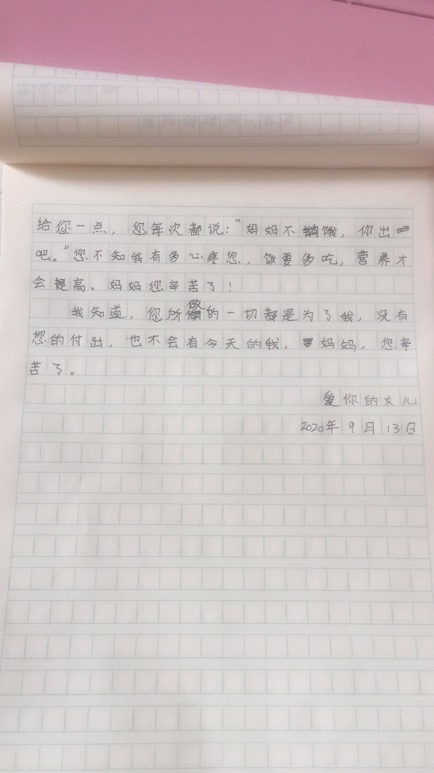 给您一点，您每次都说：“妈妈不饿，你出
吧。”您不知我有多心寒您，饭要多吃，营养才
会提高，妈妈您辛苦了！
我知道，您所做的一切都是为了我，没有
您的付出，也不会有今天的我，妈妈，您辛
苦了。
爱你的女儿
2020年9月13日